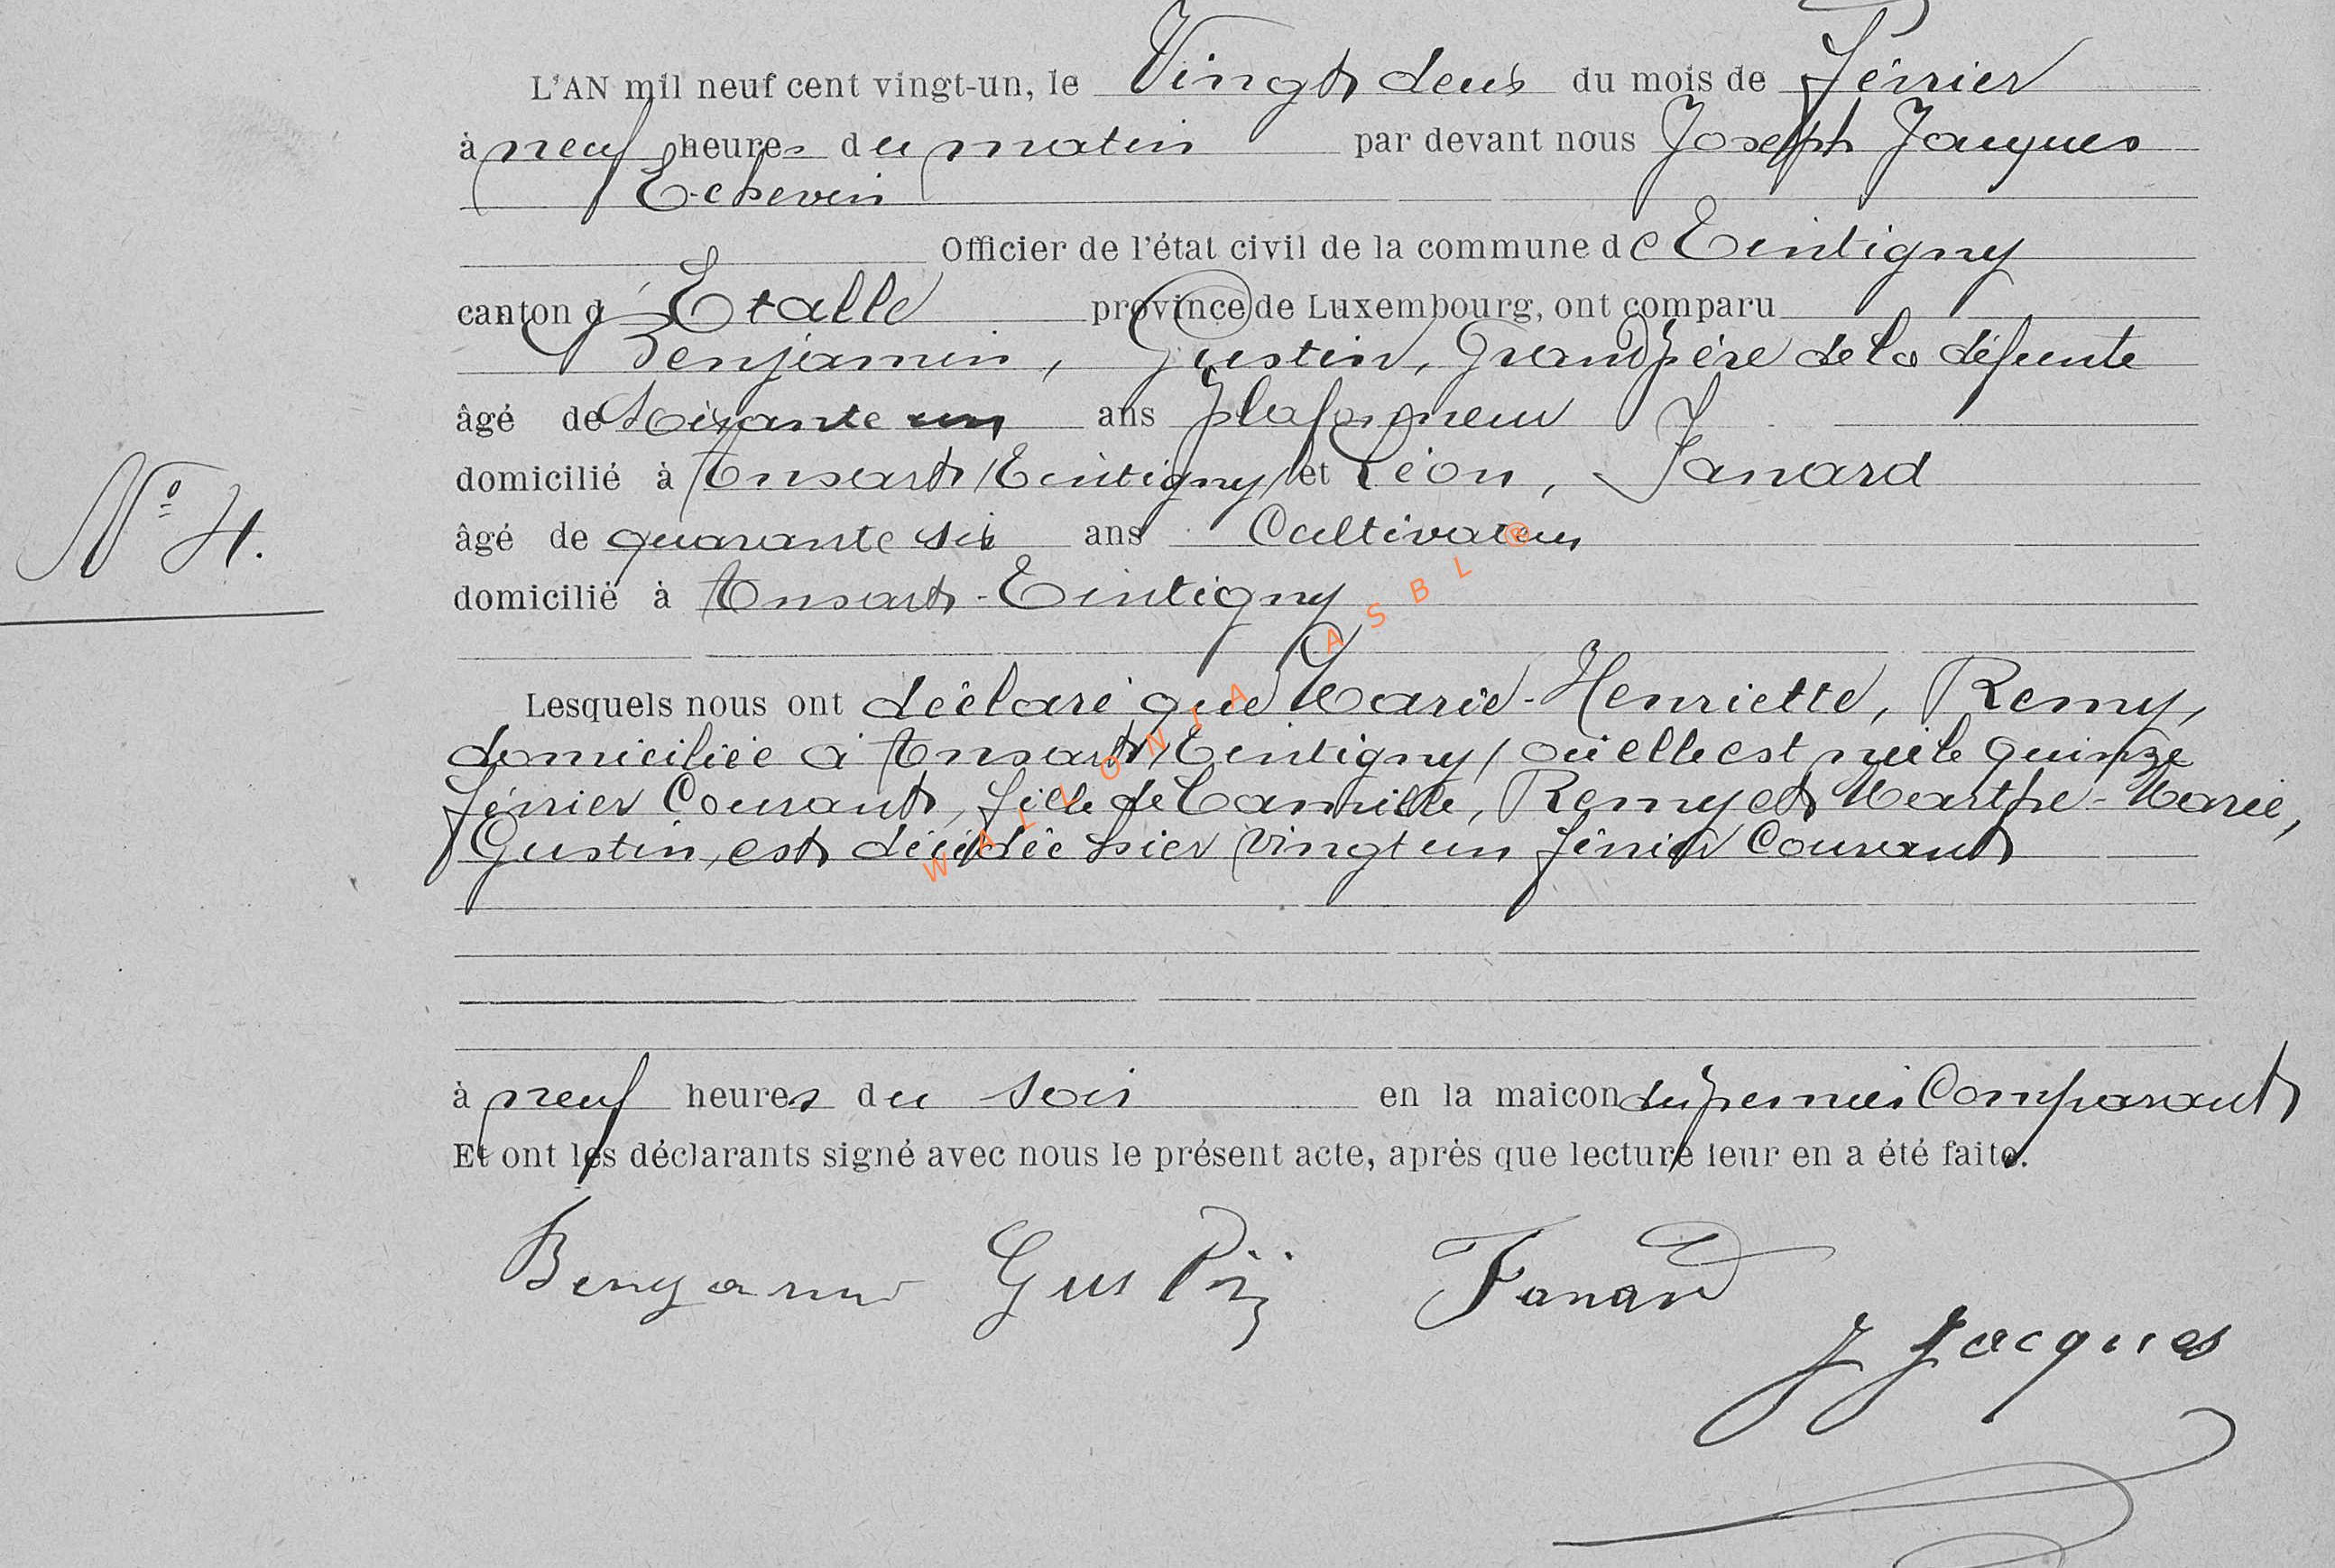 L'AN mil neuf cent vingt-un, le Vingt deux du mois de Février
à neuf heures du matin par devant nous Joseph Jacques
Echevin
Officier de l'état civil de la commune de Tintigny
canton d'Etalle province de Luxembourg, ont comparu
Benjamin, Gustin, Grand père de la défunte
âgé de Soixante un ans plafonneur
domicilié à Ansart /Tintigny/ et Léon, Fanard
âgé de quarante six ans Cultivateur
N° 4.
domicilié à Ansart-Tintigny
Lesquels nous ont déclaré que Marie-Henriette, Remy,
domiciliée à Ansart /Tintigny/ où elle est née le quinze
février Courant, fille de Camille, Remy et Marthe-Marie,
Gustin, est décédée hier vingt un février Courant
à neuf heures du soir en la maicon du premier Comparant
Et ont les déclarants signé avec nous le présent acte, après que lecture leur en a été faite.
Benjamin Gustin Fanard
J Jacques
WALLONIA ASBL ®